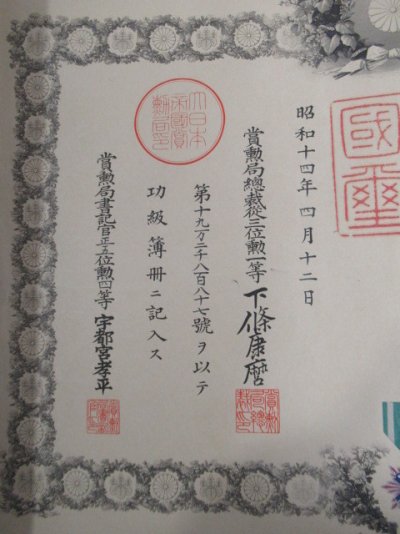 國璽
昭和十四年四月十二日
賞勲局總裁從三位勲一等 下條康麿
賞勲局總裁印
第十九万二千八百八十七號ヲ以テ
功級簿冊ニ記入ス
大日本帝國賞勲局印
賞勲局書記官正五位勲四等 宇都宮孝平